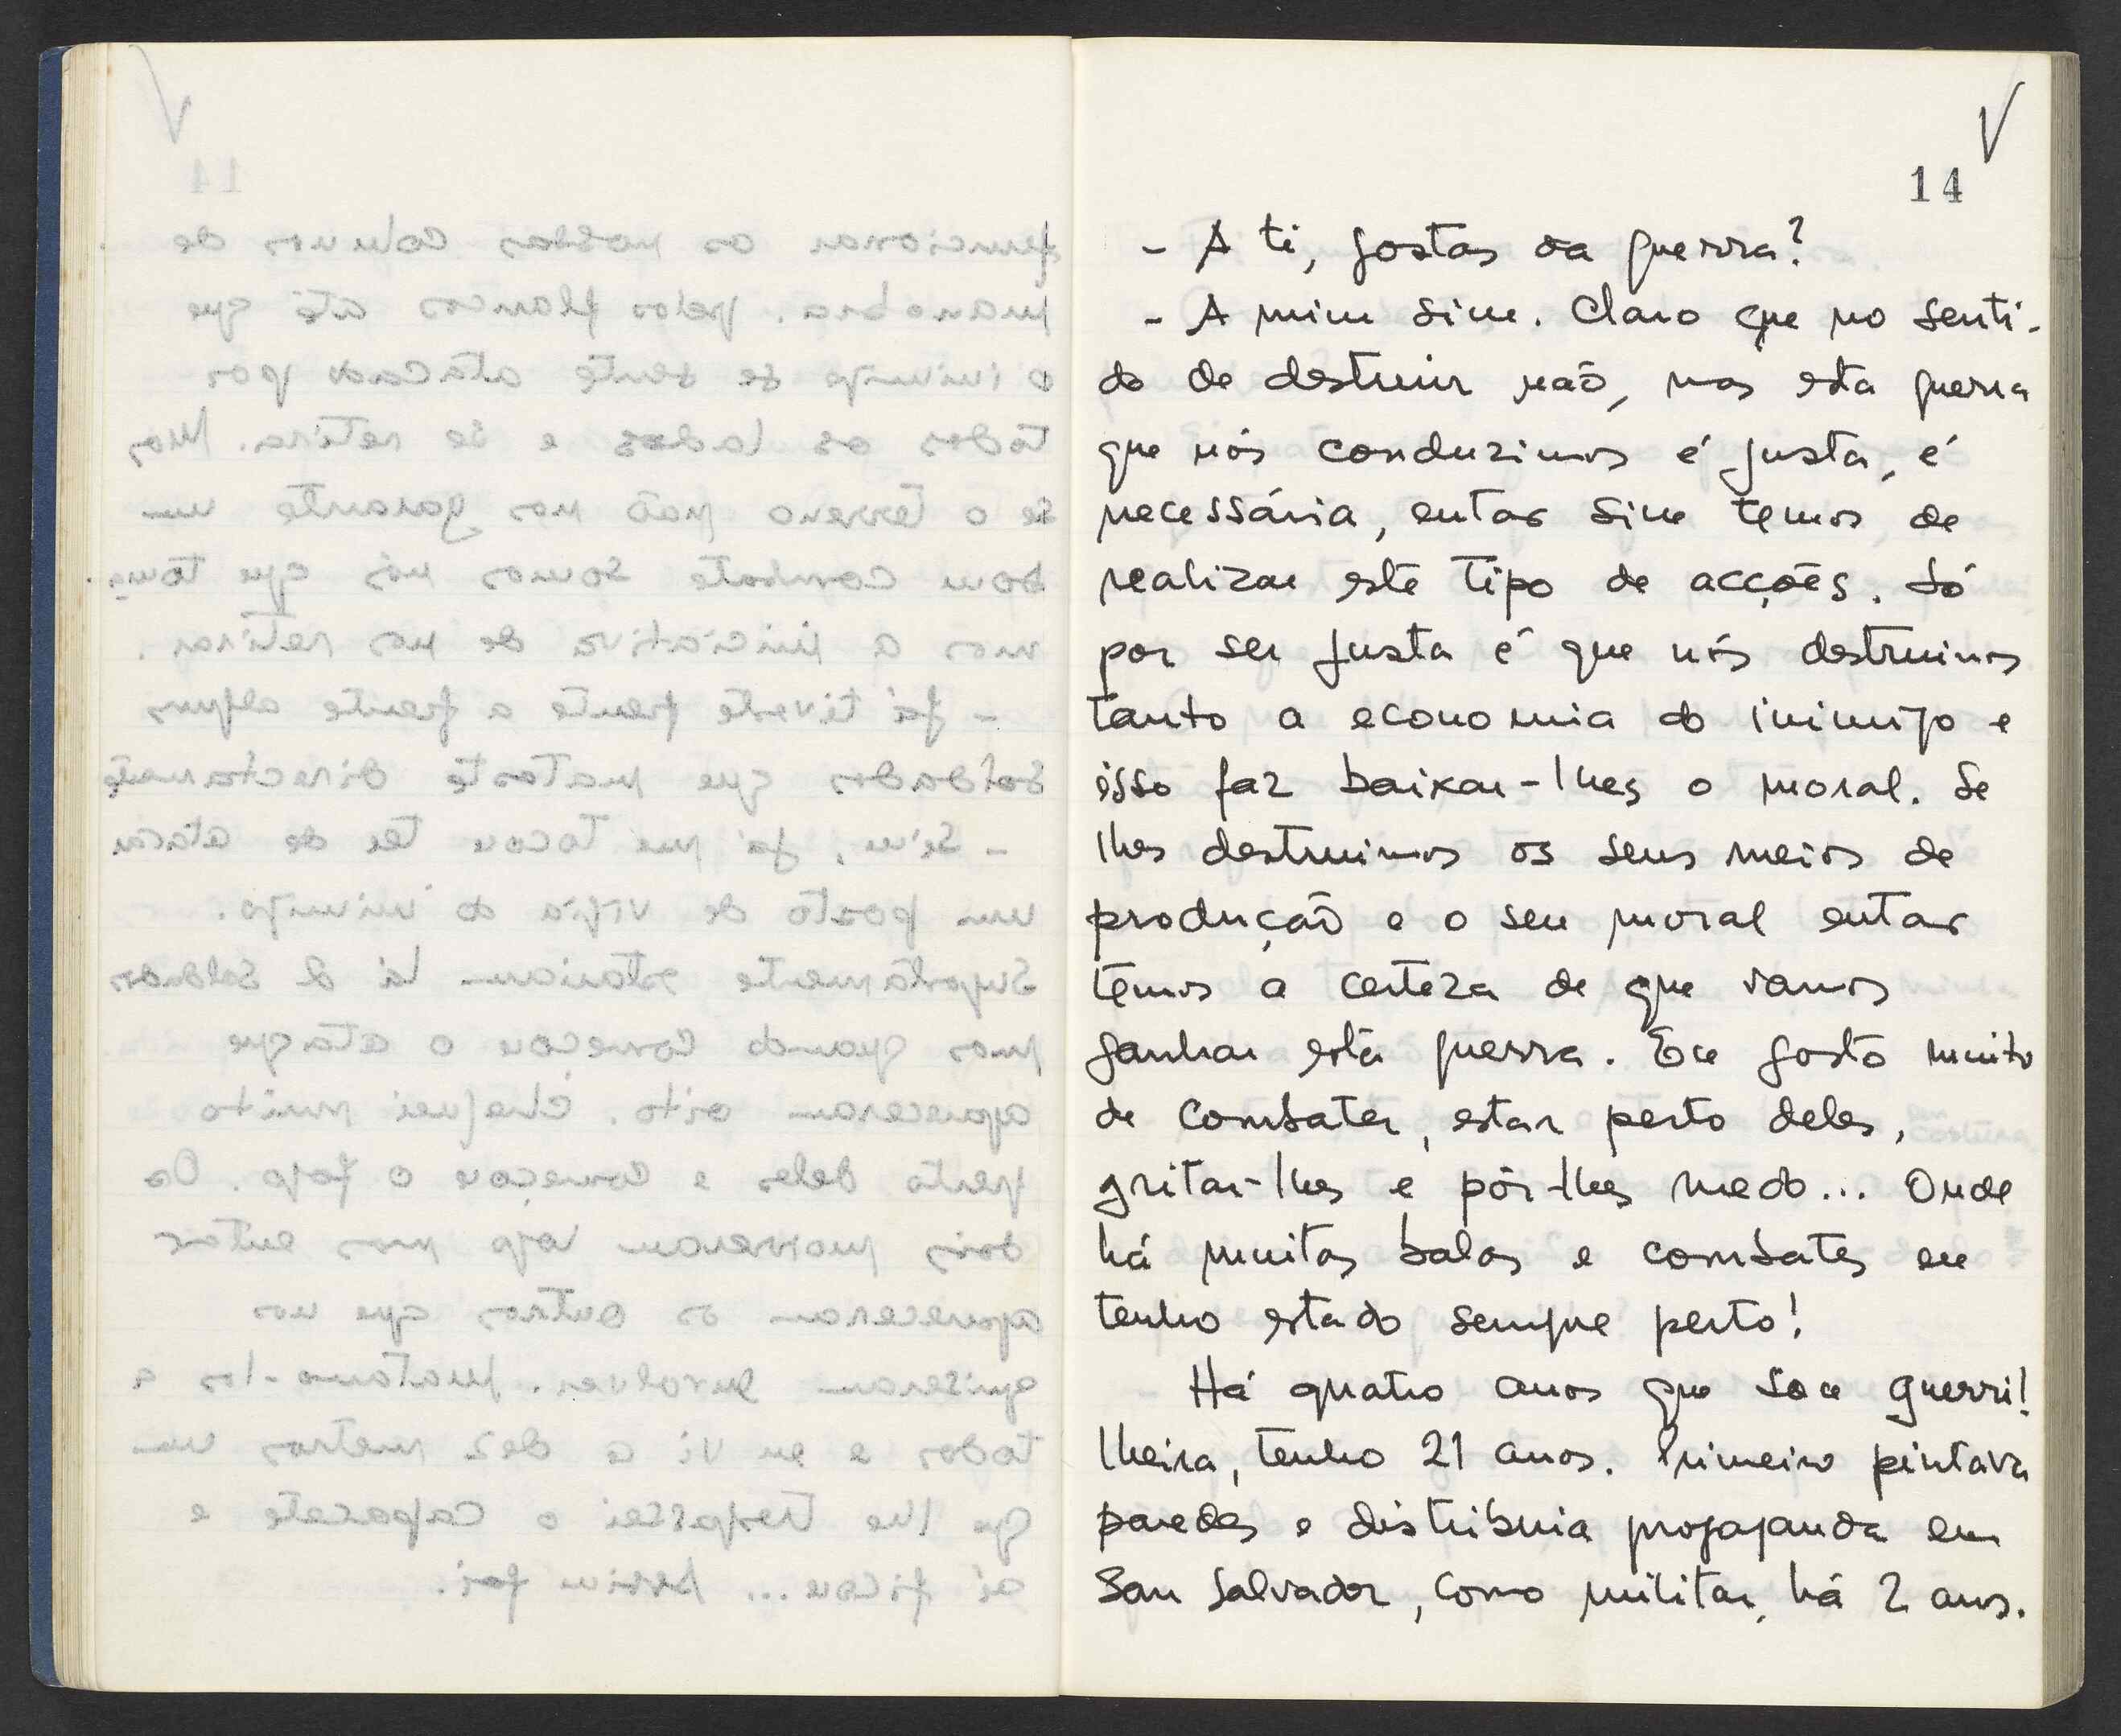 14
- A ti, gostas da guerra?
- A mim sim. Claro que no senti-
do de destruir não, mas esta guerra
que nós conduzimos é justa, é
necessária, então sim temos de
realizar este tipo de acções. Só
por ser justa é que nós destruimos
tanto a economia do inimigo e
isso faz baixar-lhes o moral. Se
lhes destruimos os seus meios de
produção e o seu moral então
temos a certeza de que vamos
ganhar esta guerra. Eu gosto muito
de combater, estar perto deles,
gritar-lhes e pôr-lhes medo... Onde
há muitas balas e combates eu
tenho estado sempre perto!
Há quatro anos que sou guerri-
lheira, tenho 21 anos. Primeiro pintava
paredes e distribuia propaganda em
San Salvador, como militar, há 2 anos.